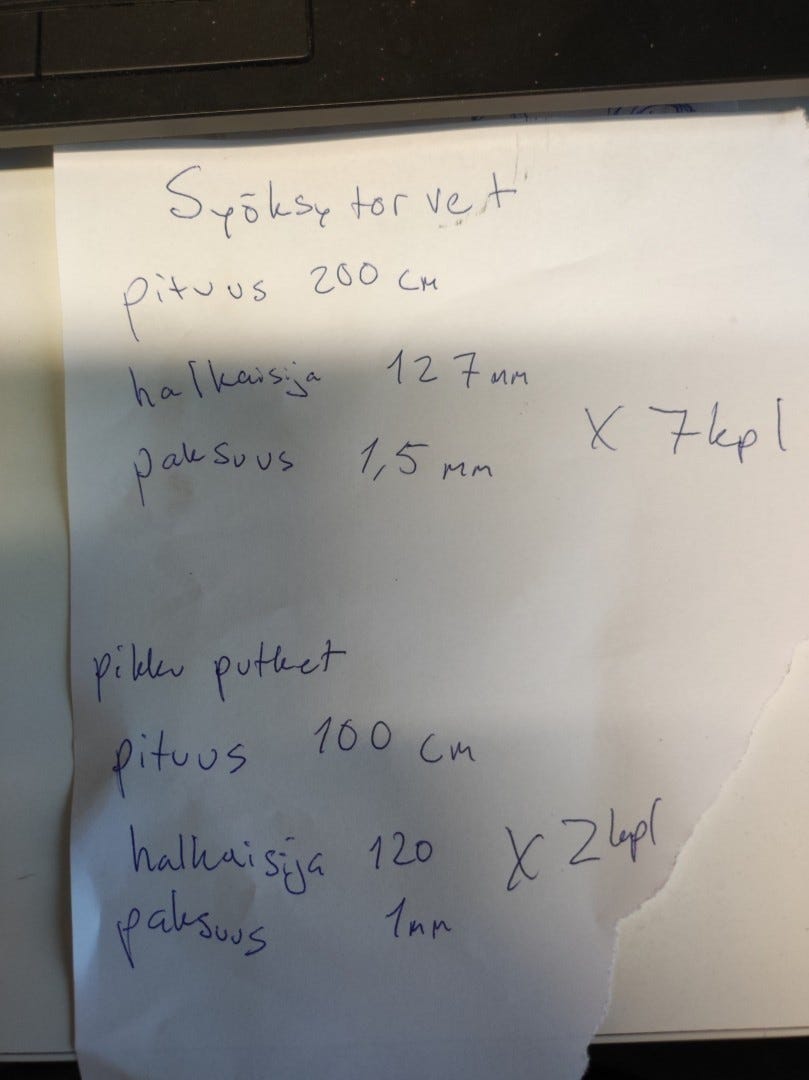 Syöksytorvet
pituus 200 cm
halkaisija 127mm
paksuus 1,5 mm X 7kpl
pikku putket
pituus 100 cm
halkaisija 120 X 2kpl
paksuus 1mm